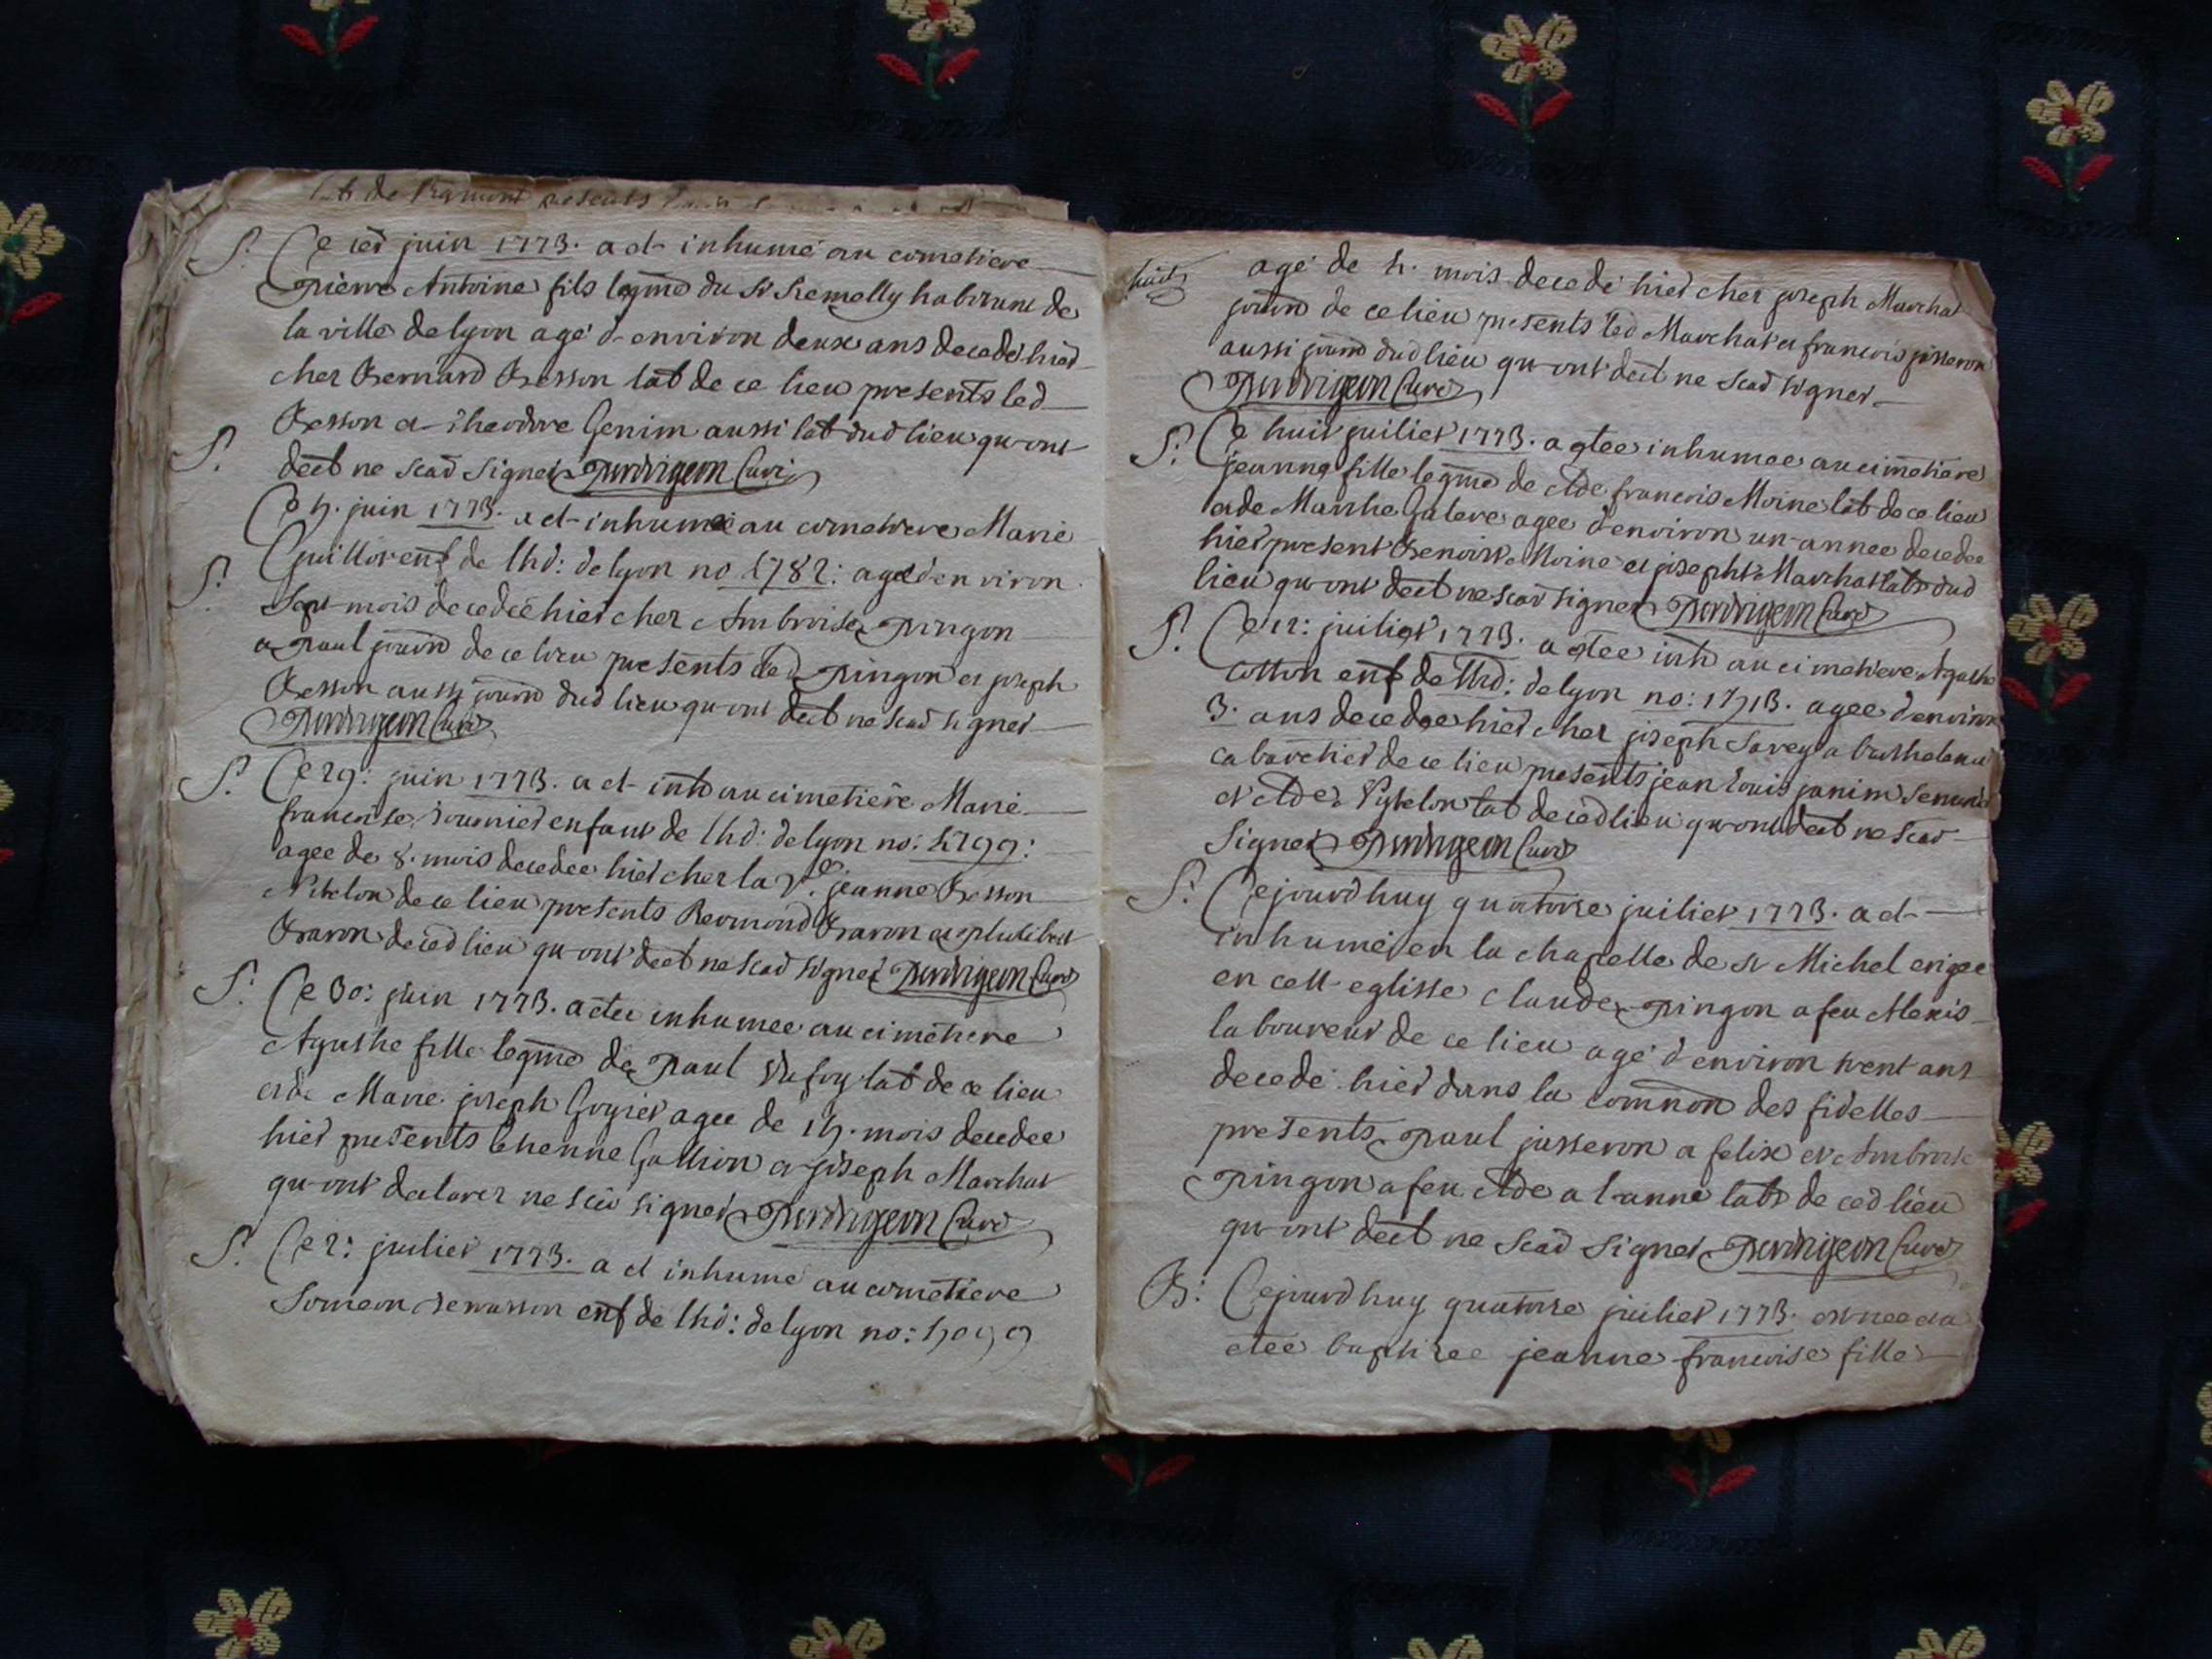 de presents
S. Ce 1er juin 1773. a et inhumé au cometiere
pierre Antoine fils legme du Sr Remelly habitant de
la ville de lyon agé d-environ deux ans decedé hier
cher Bernard Besson lab de ce lieu presents led
Besson et theodore Genim aussi lab dud lieu qu-ont
S. decl ne scav signer perdrigeon Curé
Ce 4. juin 1773. a et inhumée au cometiere Marie
S. Guillot enf de lhd: de lyon no 4782: agée d'environ
sept mois decedée hier cher Ambroise pingon
a paul journ de ce lieu presents led pingon et joseph
Besson aussi journ dud lieu qu-ont decl ne scav signer
perdrigeon Curé
S. Ce 29: juin 1773. a et inh au cimetiere Marie
francoise fournier enfant de lhd: de lyon no: 4799:
agee de 8. mois decedee hier cher la Ve. jeanne Besson
Pitelon de ce lieu presents Reymond Baron et philibert
Baron deced lieu qu-ont decl ne scav signer perdrigeon Curé
S. Ce 30: juin 1773. a etee inhumee au cimetiere
Agathe fille legme de paul Dufoy lab de ce lieu
et de Marie joseph Goyier agee de 14. mois decedee
hier presents Etienne Gallion et joseph Marchat
qu-ont declarer ne scav signer perdrigeon Curé
S. Ce 2: juilier 1773. a et inhumé au cometiere
Simeon enf de lhd: de lyon no:
huit agé de 4. mois decedé hier cher joseph Marchat
journ de ce lieu presents led Marchat et francois josseron
aussi journ dud lieu qu-ont decl ne scav signer
perdrigeon Curé
S. Ce huit juilier 1773. a etee inhumee au cimetiere
jeanne fille legme de Clde francois Moine lab de ce lieu
et de Marthe Galere agee d'environ un-annee decedee
hier present Benoist Moine et joseph Marchat labr dud
lieu qu-ont decl ne scav signer perdrigeon Curé
S. Ce 12: juilier 1773. a etee inh au cimetiere Agathe
Cotton enf de lhd: de lyon no: 1713. agee d'environ
3. ans decedee hier cher joseph Savey a barthelemi
cabaretier de ce lieu presents jean louis janim
et Clde Pytelon lab de ced lieu qu-ont decl ne scav
signer perdrigeon Curé
S. Cejourd huy quatorse juilier 1773. a et
inhumé en la chapelle de st Michel erigee
en cell-eglisse claude pingon a feu Alexis
laboureur de ce lieu agé d'environ trent ans
decedé hier dans la commnon des fidelles
presents paul jasseron a felix et Ambroise
pingon a feu Clde a l-anne labr de ced lieu
qu-ont decl ne scav signer perdrigeon Curé
B: Cejourd huy quatorse juilier 1773. est nee et a
etee baptisee jeanne francoise fille